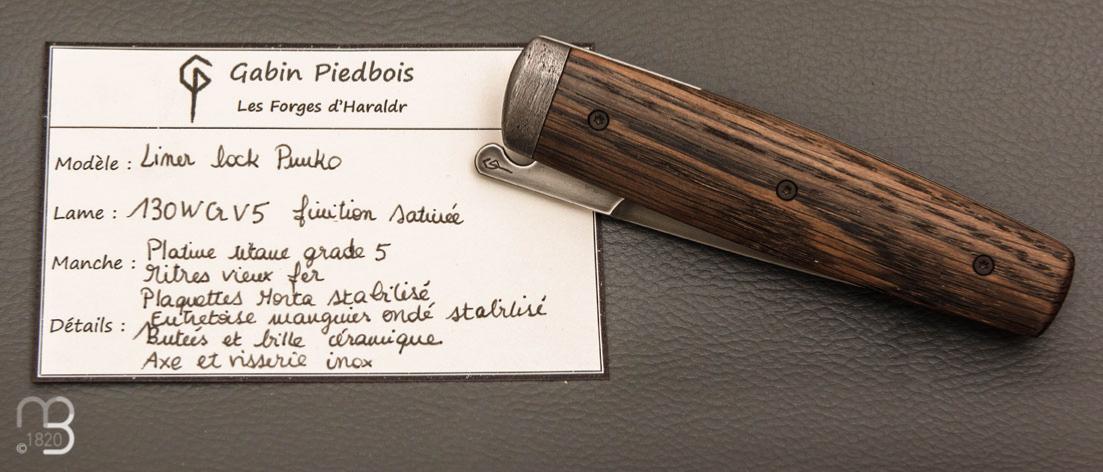 Gabin Piedbois
Les Forges d'Haraldr
Modèle : Liner lock Puuko
Lame : 130WCrV5 finition satinée
Manche : Platine titane grade 5
Mitres vieux fer
Plaquettes Morta stabilisé
Détails : Entretoise manguier ondé stabilisé
Butées et bille céramique
Axe et visserie inox
MB
©1820